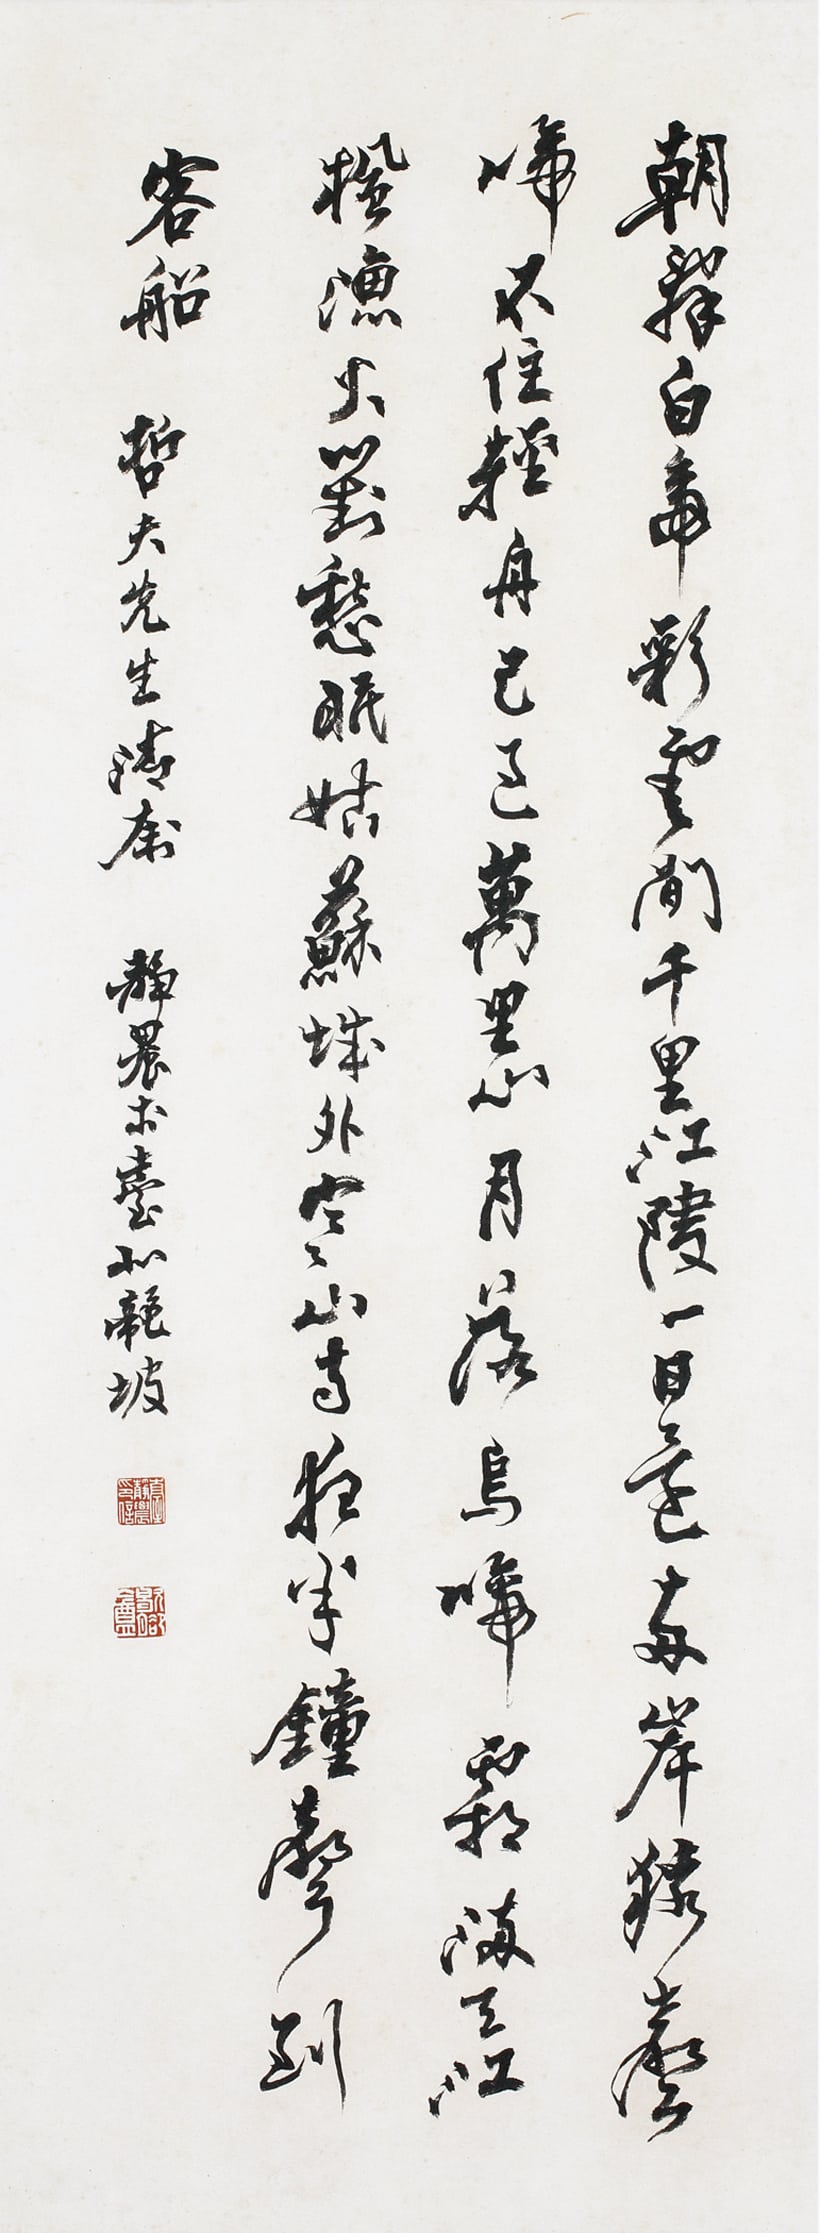 朝辭白帝彩雲間千里江陵一日還兩岸猿聲
啼不住輕舟已過萬重山月落烏啼霜滿天江
楓漁火對愁眠姑蘇城外寒山寺夜半鐘聲到
客船 哲夫先生清 靜農於臺北龍坡
臺靜農印信
歇腳盦